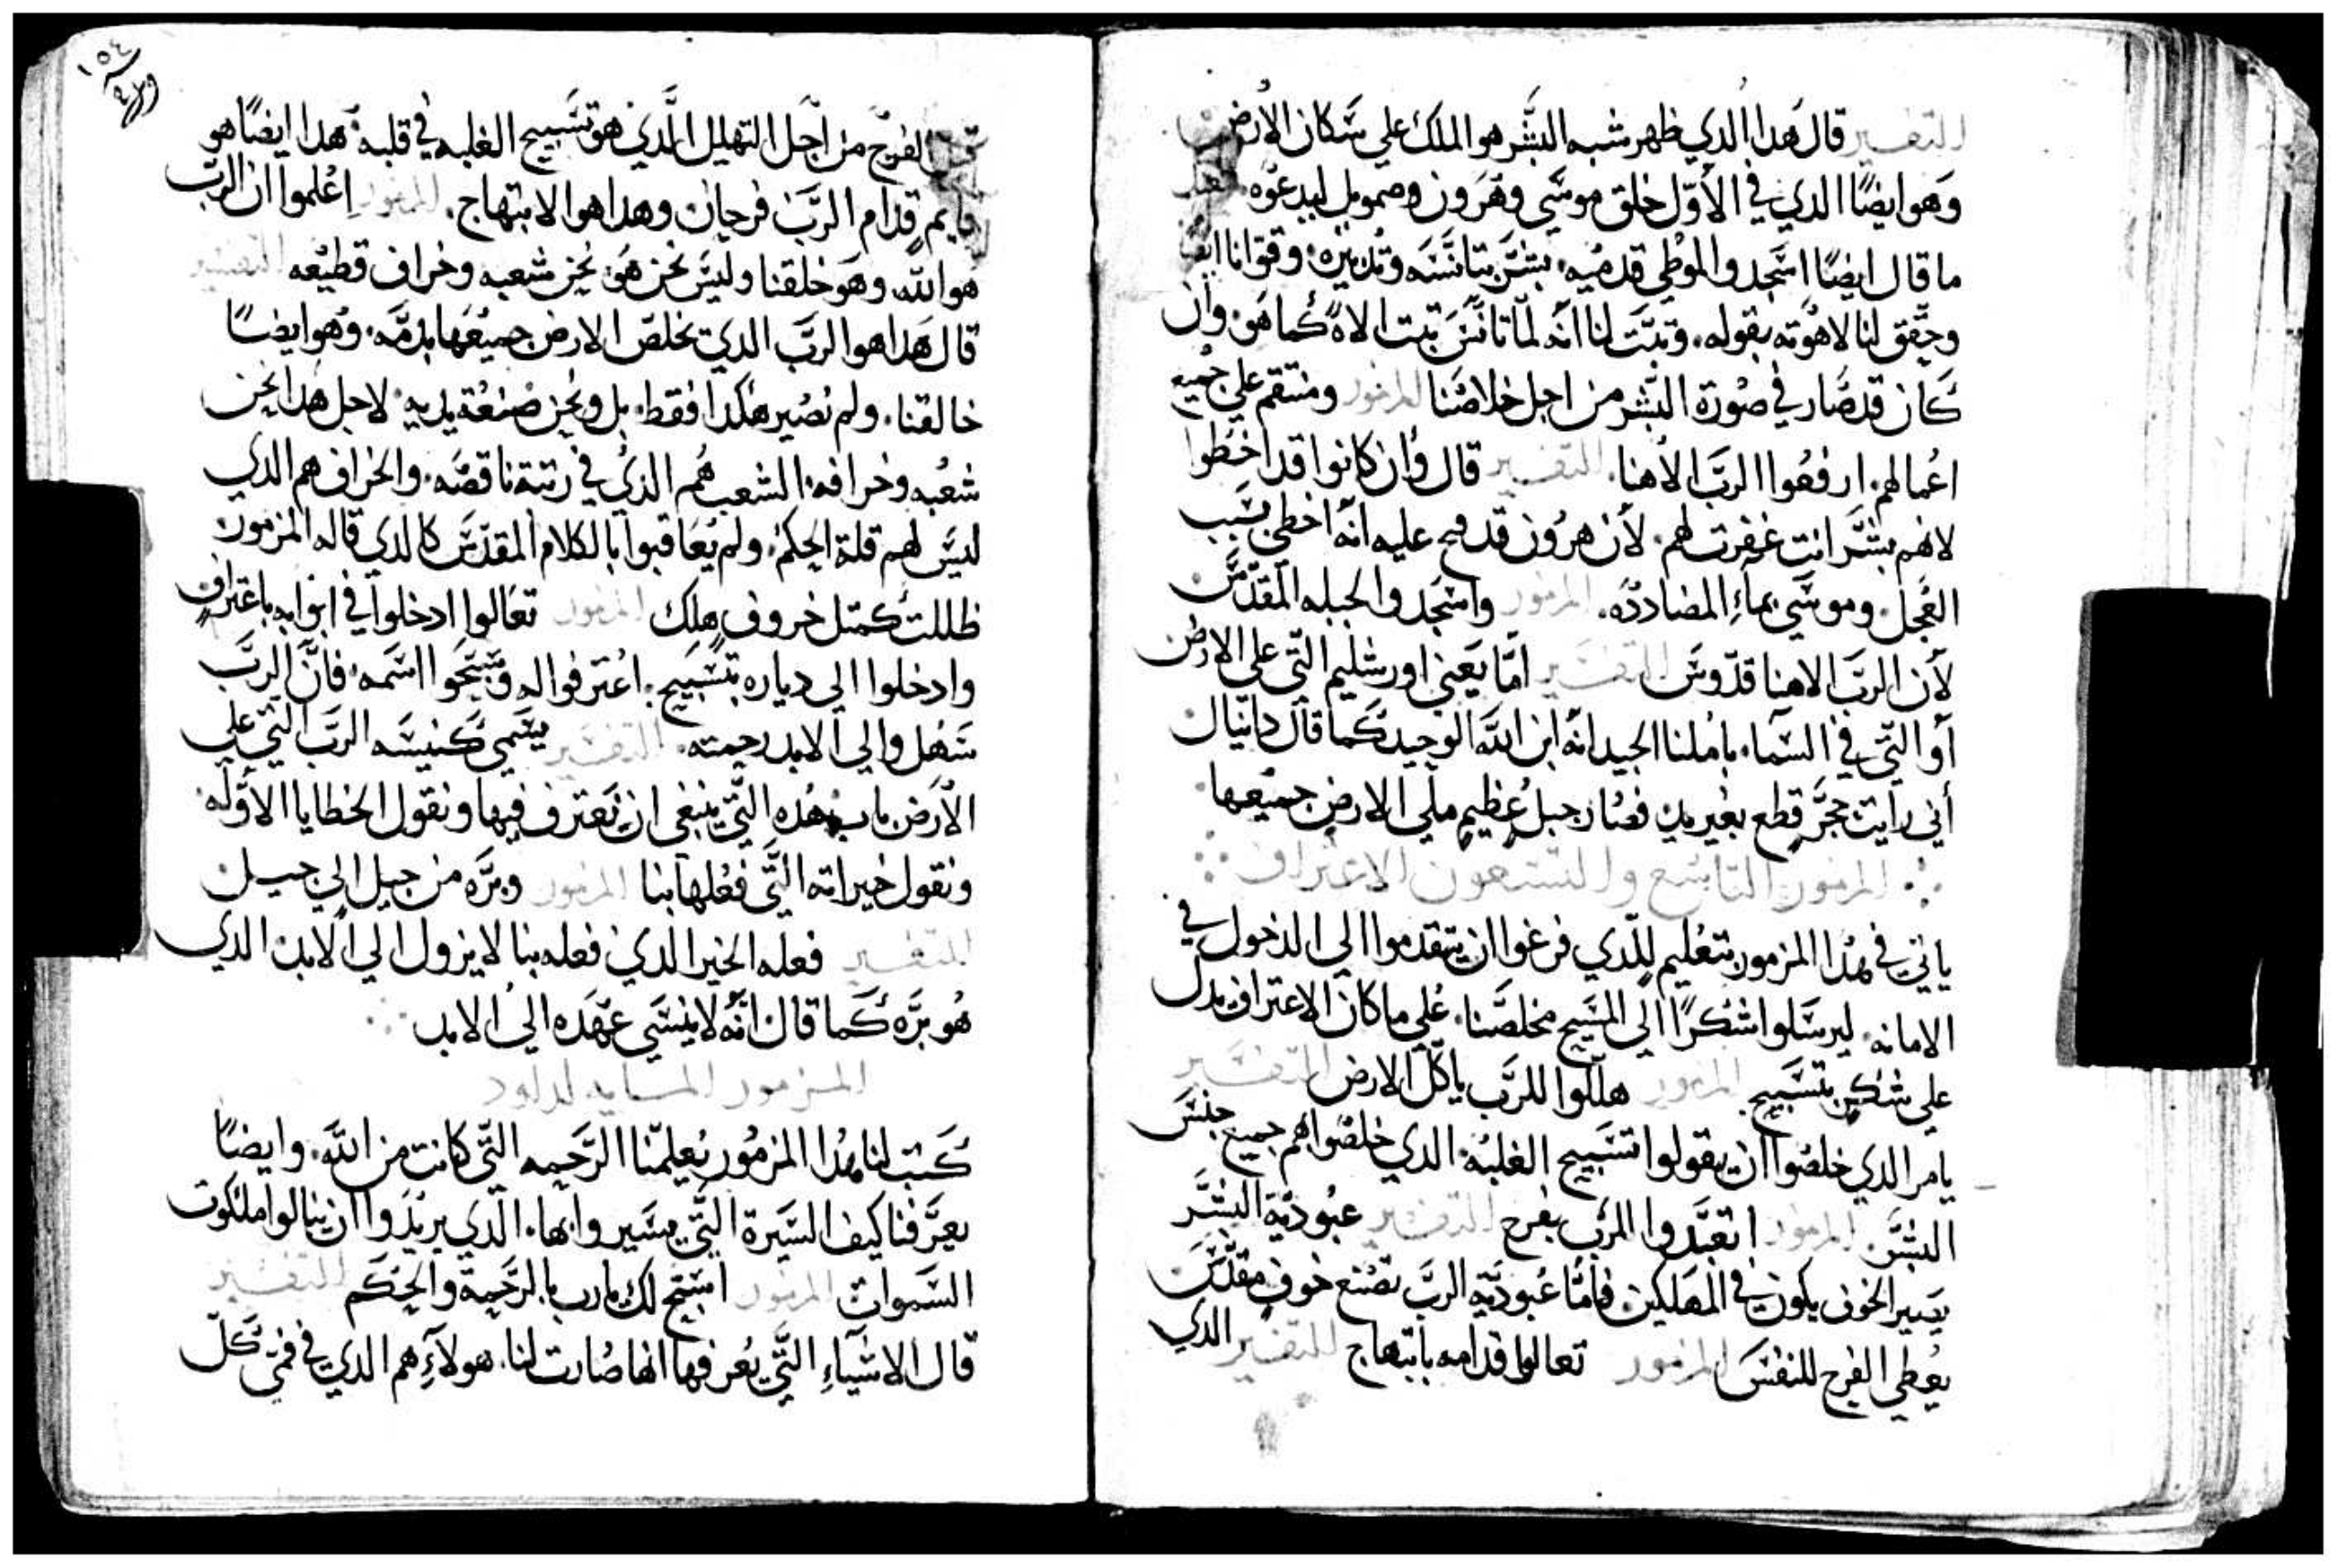 التفسير قال هدا الدي ظهر شبه البشر هو الملك علي سكان الارض
وهو ايضًا الدي في الأوّل خلق موسي وهرون وصمويل ليدعوه
ما قال ايضًا اسجدوا لموطي قدميه. بشر بتانسه وتدبيره. وقوانا ايضا
وحقق لنا لاهوته بقوله. وتبت لنا انه لمّا تانس تبت الاهً كما هو. وان
كان قد صار في صورة البشر من اجل خلاصنا المزمور ومنتقم علي جميع
اعمالهم. ارفعوا الرب الاهنا. التفسير قال وان كانوا قد اخطوا
لانهم بشر انت غفرت لهم. لأن هرون قد عليه انه اخطي بسبب
العجل. وموسي بماءِ المضادده. المزمور واسجدوا لجبله المقدس
لأن الرب الاهنا قدّوس التفسير امّا يعني اورشليم التي علي الارض
أو التي في السّماء. يا ملنا الجيد انه ابن الله الوحيد كما قال دانيال
أني رايت حجر قطع بغير يد فصار جبل عظيم ملي الارض جميعها
المزمور التاسع والتسعون الاعتراف
ياتي في هدا المزمور بتعليم للدي فرغوا ان يتقدموا الي الدخول في
الامانه. ليرسلوا شكرًا الي المسيح مخلصنا. علي ما كان الاعتراف يدل
علي شكر بتسبيح المزمور هللوا للرب يا كل الارض التفسير
يامر الدي خلصوا ان يقولوا تسبيح الغلبه. الدي خلصوا هم جميع جنس
البشر. المزمور اتعبدوا للرب بفرح التفسير عبودية البشر
يصير الخوف يكون في المهلكين. فامّا عبوديّة الرب تصنع خوف مقدس
يعطي الفرح للنفس المزمور تعالوا قدامه بابتهاج التفسير الدي
الفرح من اجل التهليل الدي هو تسبيح الغلبه في قلبه. هدا ايضًا هو
قايم قدام الرب فرحان وهدا هو الابتهاج. المزمور اعلموا ان الرب
هو الله. وهو خلقنا وليس نحن هو. نحن شعبه وخراف قطيعه التفسير
قال هدا هو الرب الدي تخلص الارض جميعها بدمه. وهو ايضًا
خالقنا. ولم نصير هكدا فقط. بل ونحن صنعة يديه. لاجل هدا نحن
شعبه وخرافه. الشعب هم الدي في رتبة ناقصه. والخراف هم الدي
ليس لهم قلة الحكم. ولم يعاقبوا بالكلام المقدس كالدي قاله المزمور
ظللت كمتل خروف هلك المزمور تعالوا ادخلوا في ابوابه باعتراف
وادخلوا الي دياره بتسبيح. اعترفوا له وسبحوا اسمه. فانّ الرب
سهل والي الابد رحمته. التفسير يسمي كنيسه الرب التي علي
الأرض باب هده التي ينبغي ان نعترف فيها ونقول الخطايا الاوّله.
ونقول خيراته التي فعلها بنا المزمور وبره من جيل الي جيل
التفسير فعله الخير الدي فعله بنا لا يزول الي الابد. الدي
هو بره كما قال انه لا ينسي عهده الي الابد
المزمور المايه لداود
كتب لنا هدا المزمور يعلمنا الرحمه التي كانت من الله. وايضًا
يعرفنا كيف السيرة التي يسيروا بها. الدي يريدوا ان ينالوا ملكوت
السموات المزمور اسبح لك يا رب بالرحمة والحكم التفسير
قال الاشياءِ التي يعرفها انها صارت لنا. هولآءِ هم الدي في فمي كل